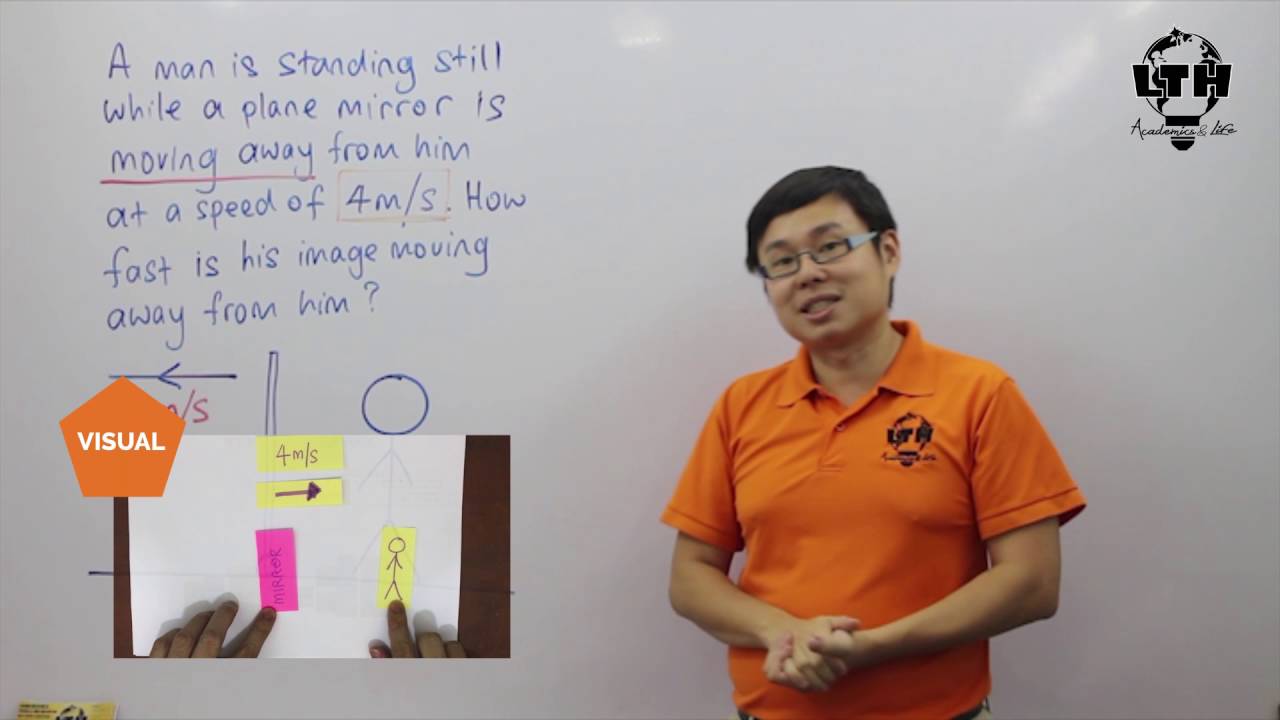 A man is standing still
while a plane mirror is
moving away from him
at a speed of 4m/s. How
fast is his image moving
away from him?
m/s
VISUAL
4m/s
MIRROR
LTH
Academics & Life
LTH
Academics & Life
LTH